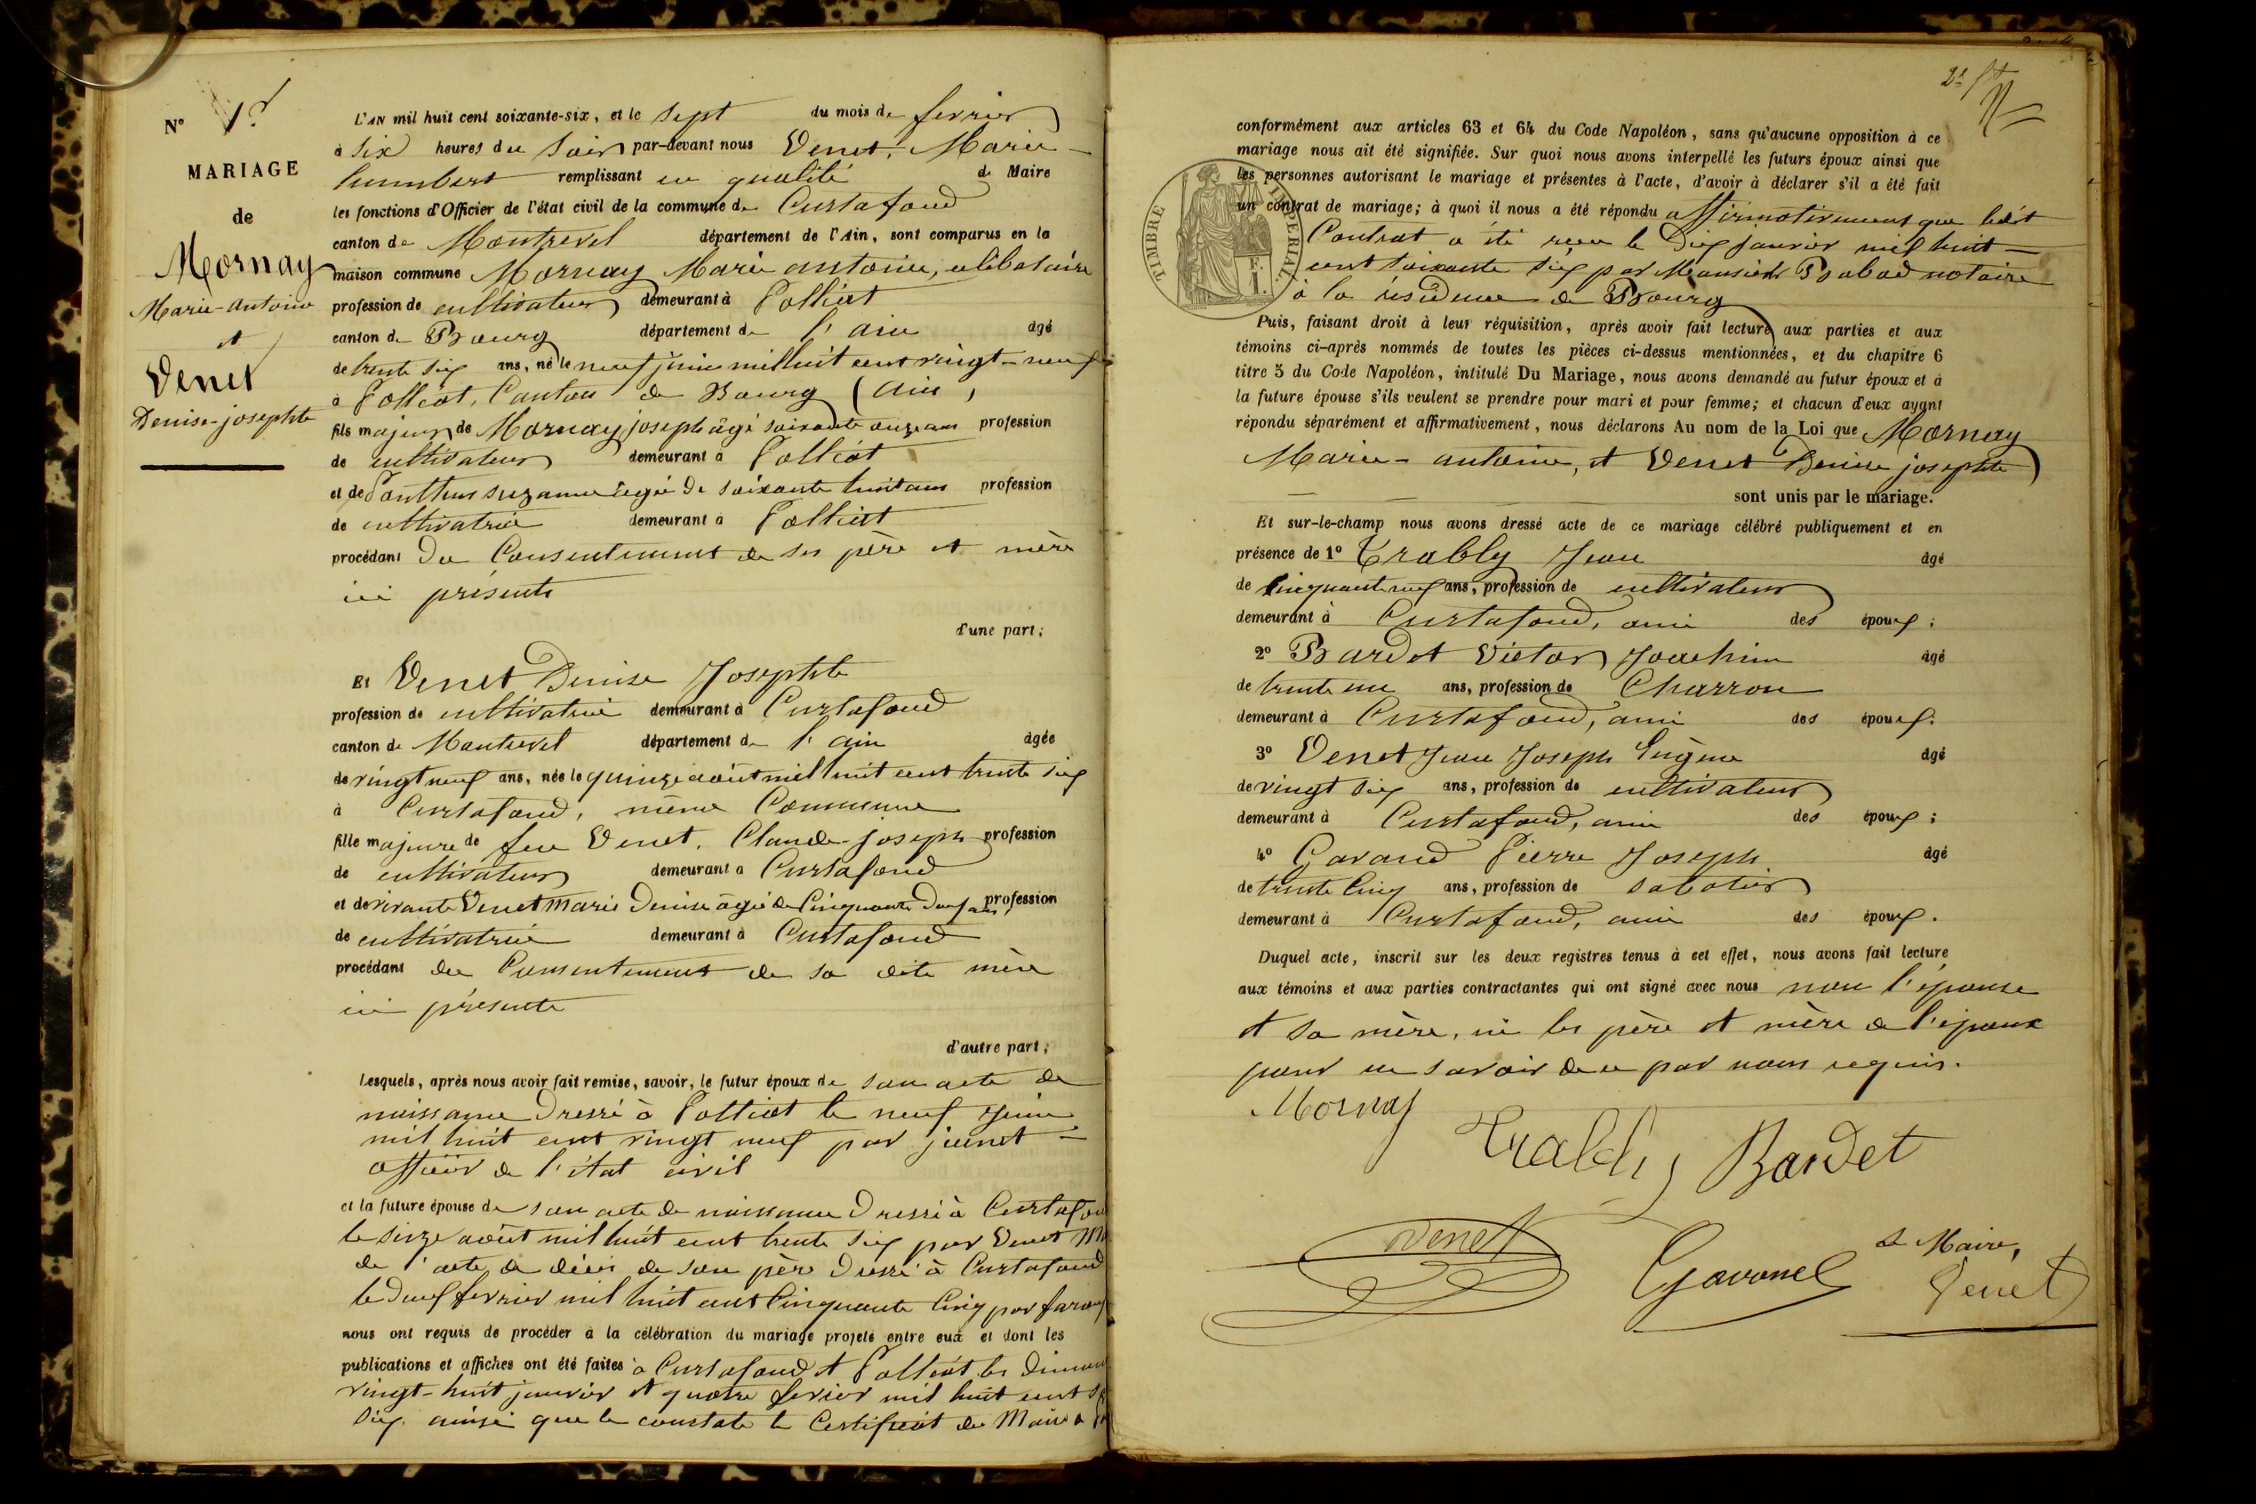 N° 1er
MARIAGE
de
Mornay
Marie-antoine
et
Venet
Denise-josephte
L'AN mil huit cent soixante-six, et le sept du mois de fevrier
à six heures du soir par-devant nous Venet, Marie-
humbert remplissant en qualité de Maire
les fonctions d'Officier de l'état civil de la commune de Curtafond
canton de Montrevel département de l'Ain, sont comparus en la
maison commune Mornay Marie antoine, célibataire
profession de cultivateur demeurant à Polliat
canton de Bourg département de l'ain âgé
de trente six ans, né le neuf juin mil huit cent vingt-neuf
à Polliat, Canton de Bourg (ain)
fils majeur de Mornay joseph âgé soixante onze ans profession
de cultivateur demeurant à Polliat
et de suzanne âgée de soixante huit ans profession
de cultivatrice demeurant à Polliat
procédant du Consentement de ses père et mère
ici présents
d'une part;
Et Venet Denise Josephte
profession de cultivatrice demeurant à Curtafond
canton de Montrevel département de l'ain âgée
de vingt neuf ans, née le quinze août mil huit cent trente six
à Curtafond, même Commune
fille majeure de feu Venet, Claude-joseph profession
de cultivateur demeurant à Curtafond
et de vivante Venet marie Denise âgée de Cinquante deux ans, profession
de cultivatrice demeurant à Curtafond
procédant du Consentement de sa dite mère
ici présente
d'autre part;
Lesquels, après nous avoir fait remise, savoir, le futur époux de son acte de
naissance Dressé à Polliat le neuf Juin
mil huit cent vingt neuf par
officier de l'état civil
et la future épouse de son acte de naissance Dressé à Curtafon
le seize août mil huit cent trente six par Venet M
de l'acte de décès de son père Dressé à Curtafond
le deux fevrier mil huit cent Cinquante Cinq par
nous ont requis de procéder à la célébration du mariage projeté entre eux et dont les
publications et affiches ont été faites à Curtafond et Polliat les Diman
vingt-huit janvier et quatre fevrier mil huit cent
six ainsi que le constate le Certificat du Maire de
conformément aux articles 63 et 64 du Code Napoléon, sans qu'aucune opposition à ce
mariage nous ait été signifiée. Sur quoi nous avons interpellé les futurs époux ainsi que
les personnes autorisant le mariage et présentes à l'acte, d'avoir à déclarer s'il a été fait
un contrat de mariage; à quoi il nous a été répondu affirmativement que ledit
Contrat a été reçu le Dix janvier mil huit-
cent soixante six par Monsieur Babad notaire
à la résidence de Bourg
TIMBRE IMPERIAL.
Puis, faisant droit à leur réquisition, après avoir fait lecture aux parties et aux
témoins ci-après nommés de toutes les pièces ci-dessus mentionnées, et du chapitre 6
titre 5 du Code Napoléon, intitulé Du Mariage, nous avons demandé au futur époux et à
la future épouse s'ils veulent se prendre pour mari et pour femme; et chacun d'eux ayant
répondu séparément et affirmativement, nous déclarons Au nom de la Loi que Mornay
Marie-antoine, et Venet Denise josephte
sont unis par le mariage.
Et sur-le-champ nous avons dressé acte de ce mariage célébré publiquement et en
présence de 1° Trably Jean âgé
de Cinquante neuf ans, profession de cultivateur
demeurant à Curtafond, ami des époux;
2° Bardet Victor Joachim âgé
de trente un ans, profession de Charron
demeurant à Curtafond, ami des époux;
3° Venet Jean Joseph Eugène âgé
de vingt six ans, profession de cultivateur
demeurant à Curtafond, ami des époux;
4° Gavand Pierre Joseph âgé
de trente Cinq ans, profession de sabotier
demeurant à Curtafond, ami des époux.
Duquel acte, inscrit sur les deux registres tenus à cet effet, nous avons fait lecture
aux témoins et aux parties contractantes qui ont signé avec nous non l'épouse
et sa mère, ni les père et mère de l'époux
pour ne savoir de ce par nous requis.
Mornay
Trably Bardet
Venet
le Maire,
Venet